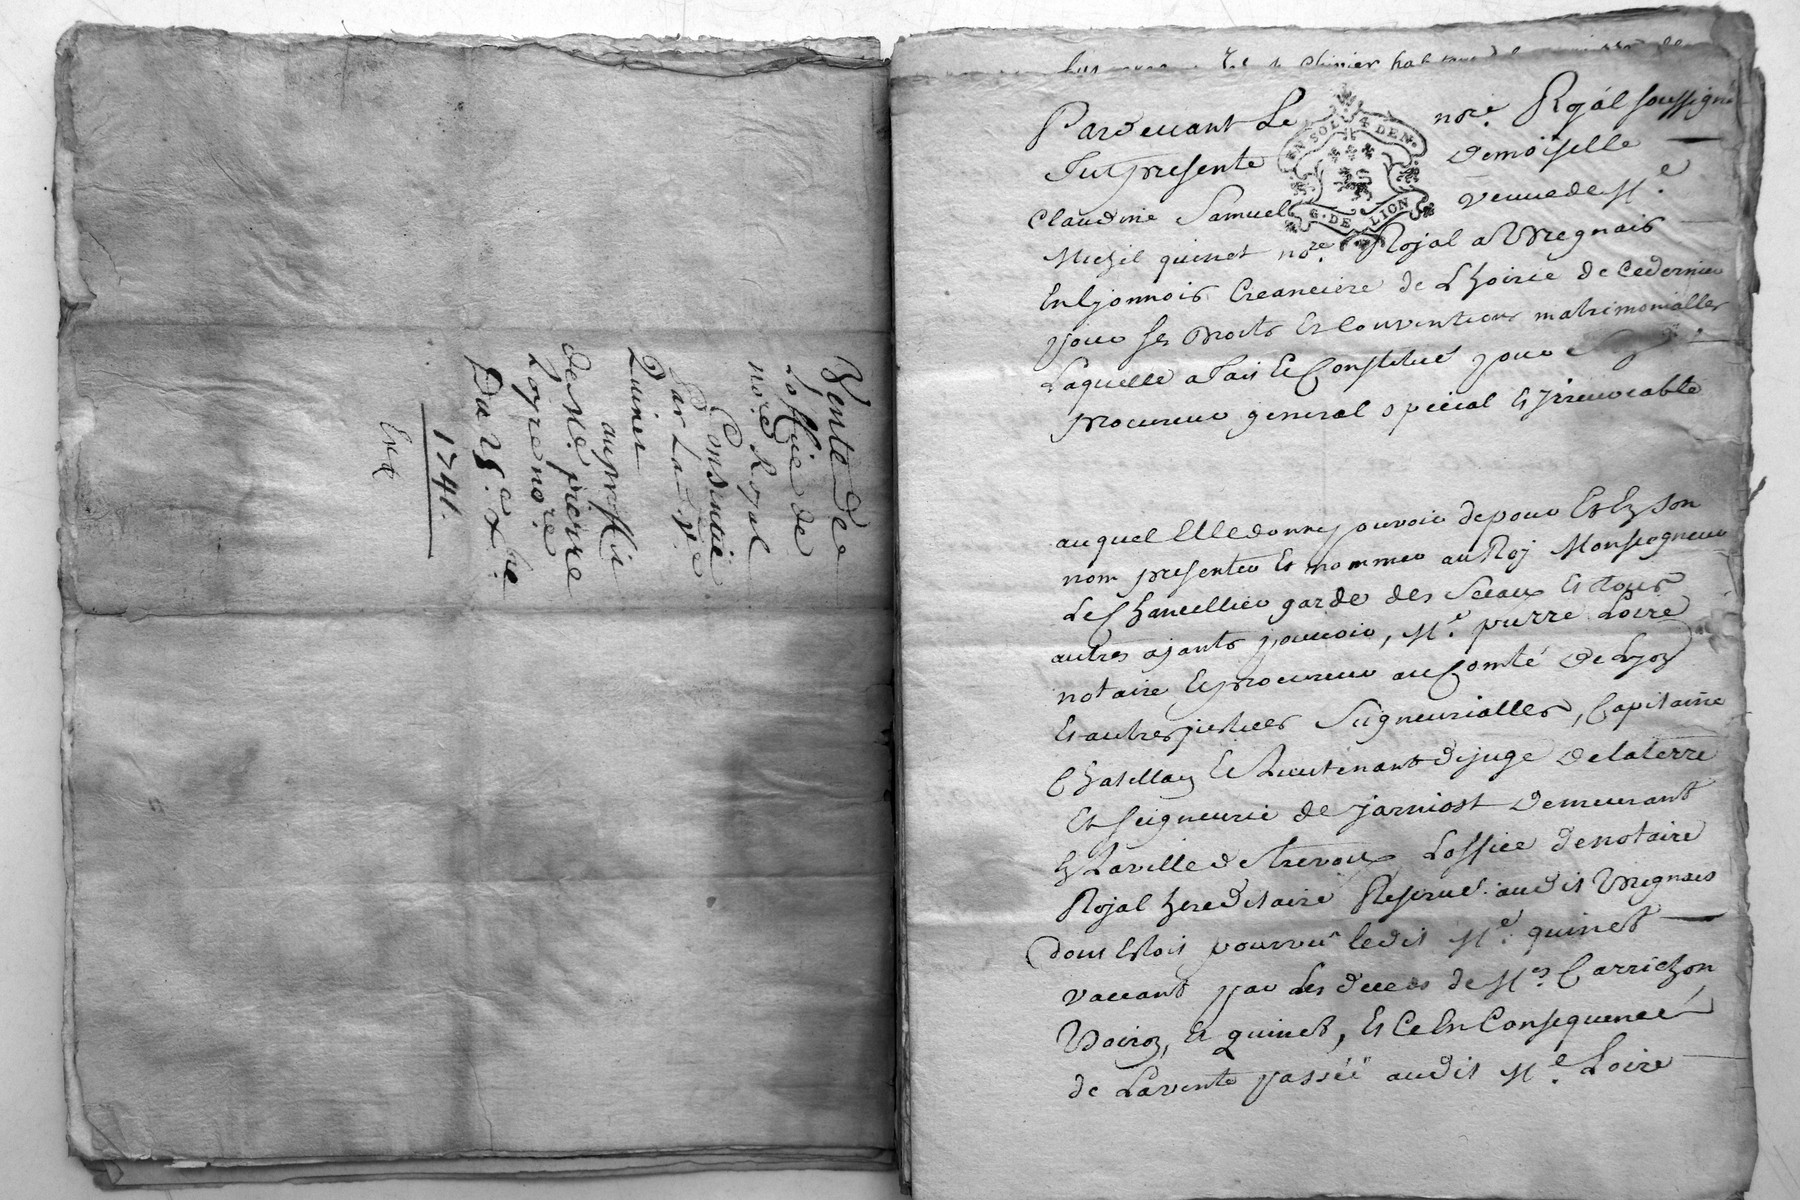 Vente de
Loffice de
nore Royal
Consentie
Par La d. ve
Quinet
au proffit
de Me. pierre
Loyre nore
Du 25e xbre
1741.
Pardevant Le nore. Royal soussigné
Fut presente Demoiselle
Claudine Samuel veuve de Me
Michel quinet nore. Royal a Vregnais
En lyonnois Creanciere de Lhoirie de ce dernier
pour ses droits Et Conventions matrimonialles
Laquelle a fait Et Constitué pour
procureur general special Et Irrevocable
auquel Elle donne pouvoir de pour Et En son
nom presenter Et nommer au Roy Monseigneur
Le Chancellier garde des Sceaux Et tous
autres ayants pouvoir, Me. pierre Loire
notaire Et procureur au Comté de Lyon
Et autres justices Seigneurialles, Capitaine
Chatellain Et Lieutenant de juge de la terre
Et seigneurie de jarniost Demeurant
En La ville de trevoux Loffice de notaire
Royal hereditaire Reservé audit Vregnais
dont Estoit pourvu ledit Me. quinet
vaccant par Les deceds de Mes. Carrichon
Voiron, Et quinet, Et Ce En Consequence
de La vente passée audit Me. Loire
EN SOL 4 DEN.
G. DE LION